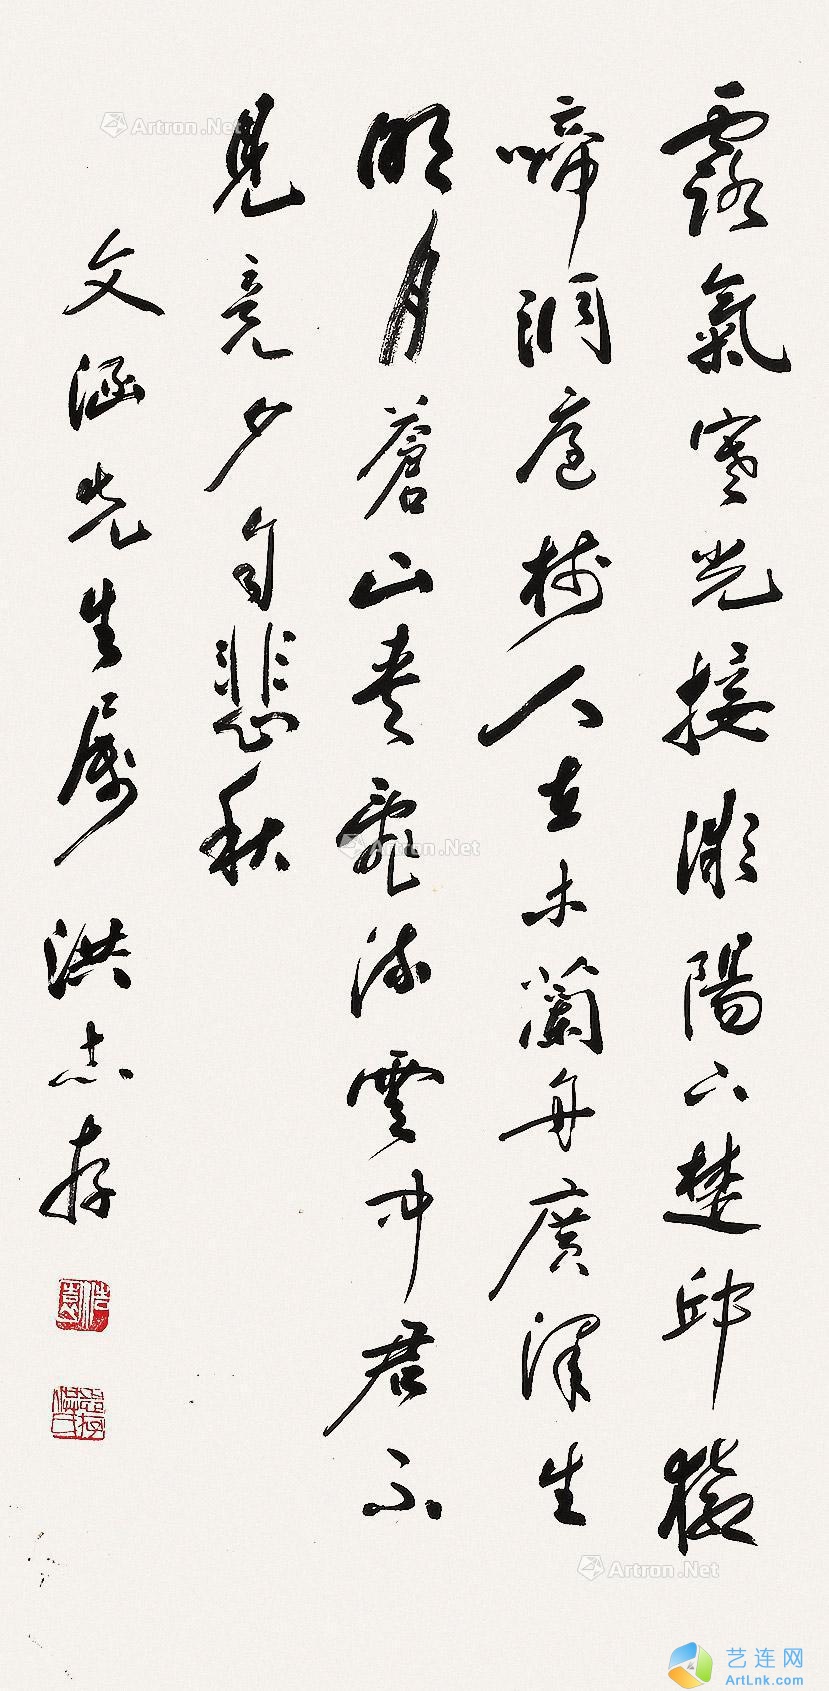 露氣寒光接微陽下楚邱猿
啼洞庭樹人在木蘭舟廣澤生
明月蒼山夾亂流雲中君不
見竟夕自悲秋
文涵先生屬 洪志存
Artron.Net
Artron.Net
Artron.Net
艺连网
ArtLnk.com